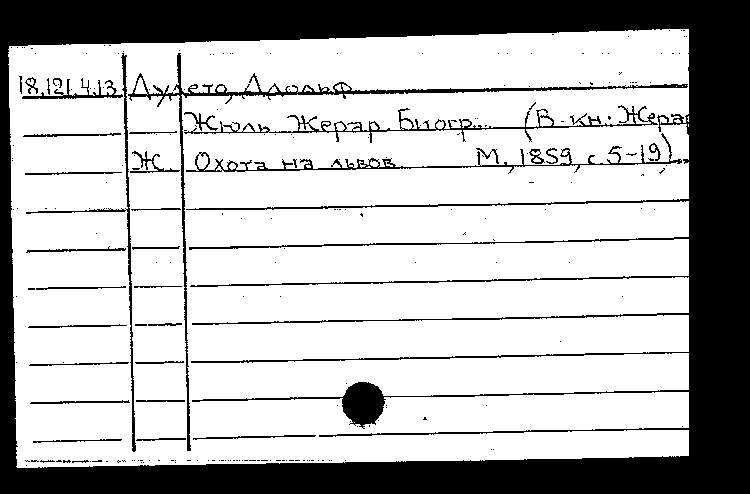 18.121.4.13 Дудето, Адольф
Жюль Жерар. Биогр. (В кн: Жерар
Ж. Охота на львов М., 1859, с. 5-19)